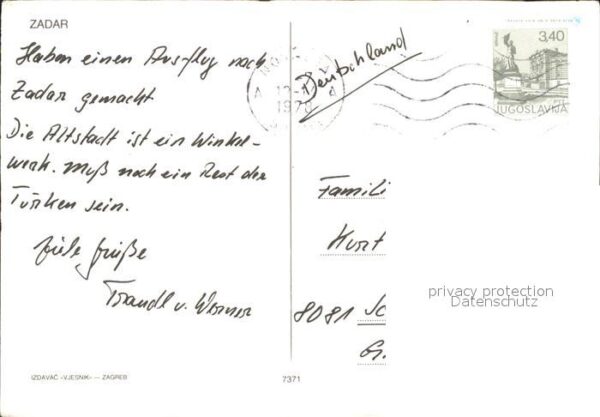 ZADAR
Haben einen Ausflug nach
Zadar gemacht
Die Altstadt ist ein Winkel-
werk. Muß noch ein Rest der
Türken sein.
Viele Grüße
Traudl u. Werner
IZDAVAČ »VJESNIK« — ZAGREB
7371
Deutschland
3,40
JUGOSLAVIJA
Famili
Kurt
8081
privacy protection
Datenschutz